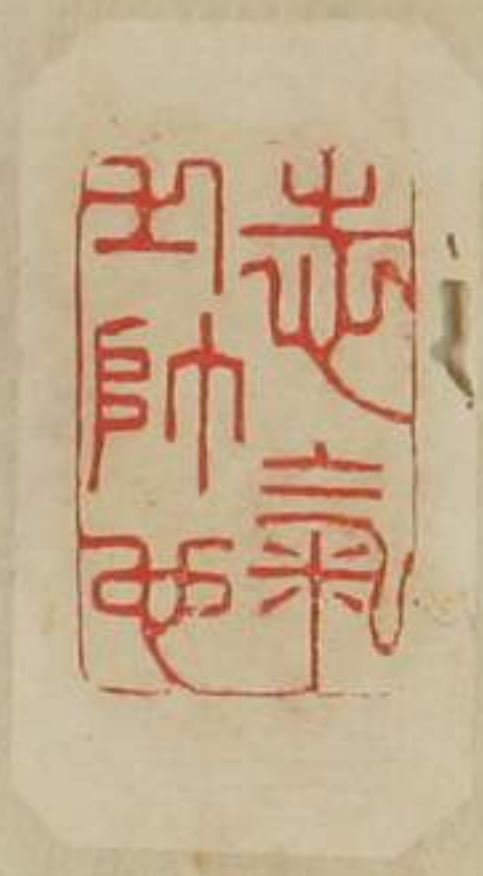 志氣
之帥也